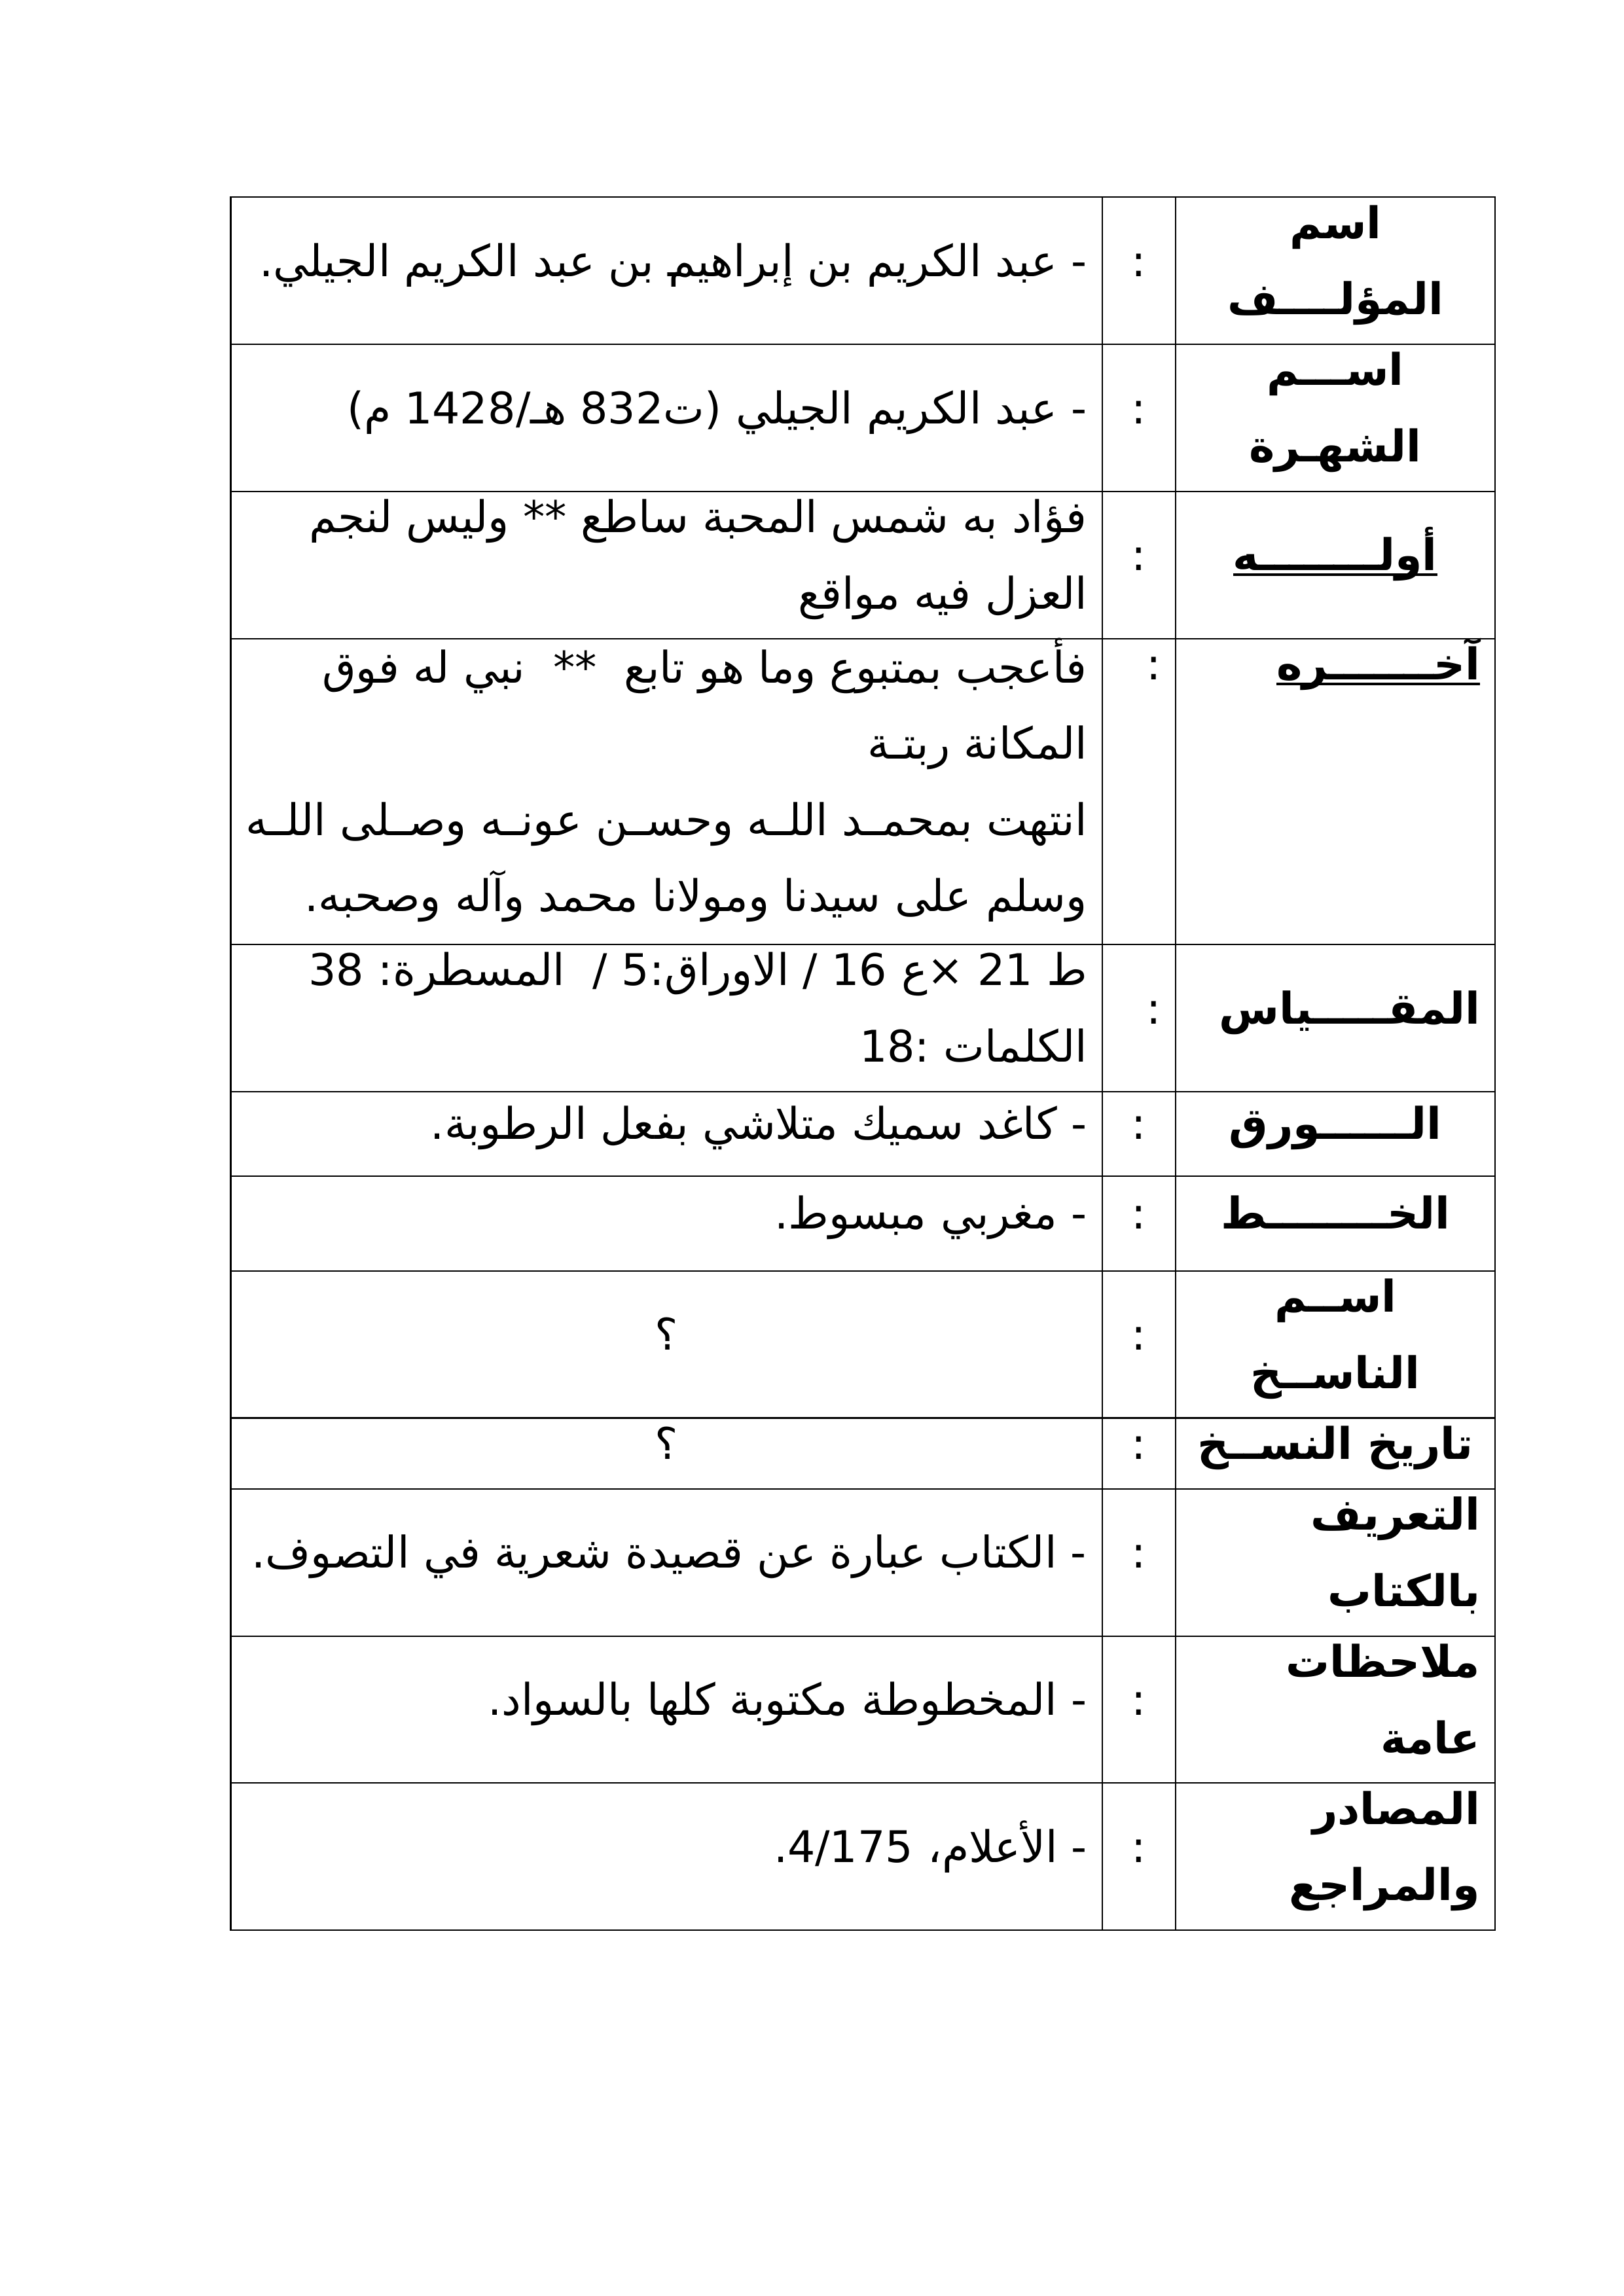 اسم
المؤلــــف
:
- عبد الكريم بن إبراهيم بن عبد الكريم الجيلي.
اســـم
الشهـرة
:
- عبد الكريم الجيلي (ت832 هـ/1428 م)
أولــــــــه
:
فؤاد به شمس المحبة ساطع ** وليس لنجم
العزل فيه مواقع
آخـــــــره
:
فأعجب بمتبوع وما هو تابع ** نبي له فوق
المكانة ربتـة
انتهت بمحمـد اللـه وحسـن عونـه وصـلى اللـه
وسلم على سيدنا ومولانا محمد وآله وصحبه.
المقـــــياس
:
ط 21 ×ع 16 / الاوراق:5 / المسطرة: 38
الكلمات :18
الــــــورق
:
- كاغد سميك متلاشي بفعل الرطوبة.
الخــــــــط
:
- مغربي مبسوط.
اســم
الناســخ
:
؟
تاريخ النســخ
:
؟
التعريف
بالكتاب
:
- الكتاب عبارة عن قصيدة شعرية في التصوف.
ملاحظات
عامة
:
- المخطوطة مكتوبة كلها بالسواد.
المصادر
والمراجع
:
- الأعلام، 4/175.